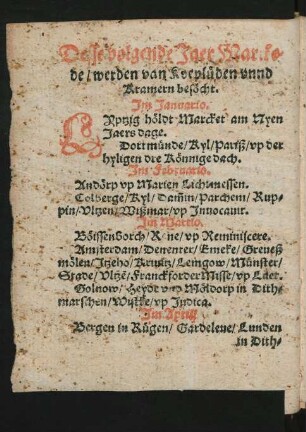 Desse volgende Jaer Marcke-
de/ werden van Koeplüden vnnd
Kramern besöcht.
Im Januario.
LYptzig höldt Marcket am Nyen
Jaers dage.
Dortmünde/ Kyl/ Paryß/ vp der
hylligen dre Könnige dach.
Im Februario.
Andörp vp Marien Lichtmessen.
Colberge/ Kyl/ Damin/ Parchem/ Rup-
pin/ Vltzen/ Wißmar/ vp Innocauit.
Im Martio.
Böissenborch/ Rene/ vp Reminiscere.
Amsterdam/ Deuenter/ Emcke/ Greueß
mölen/ Itzeho/ Lemgow/ Münster/
Stade/ Vltzē/ Franckforder Misse/ vp Láer.
Golnow/ Heydt vnd Möldorp in Dith-
marschen/ Wyttke/ vp Judica.
Im Aprill
Bergen in Rügen/ Gardelene/ Lunden
in Dith-